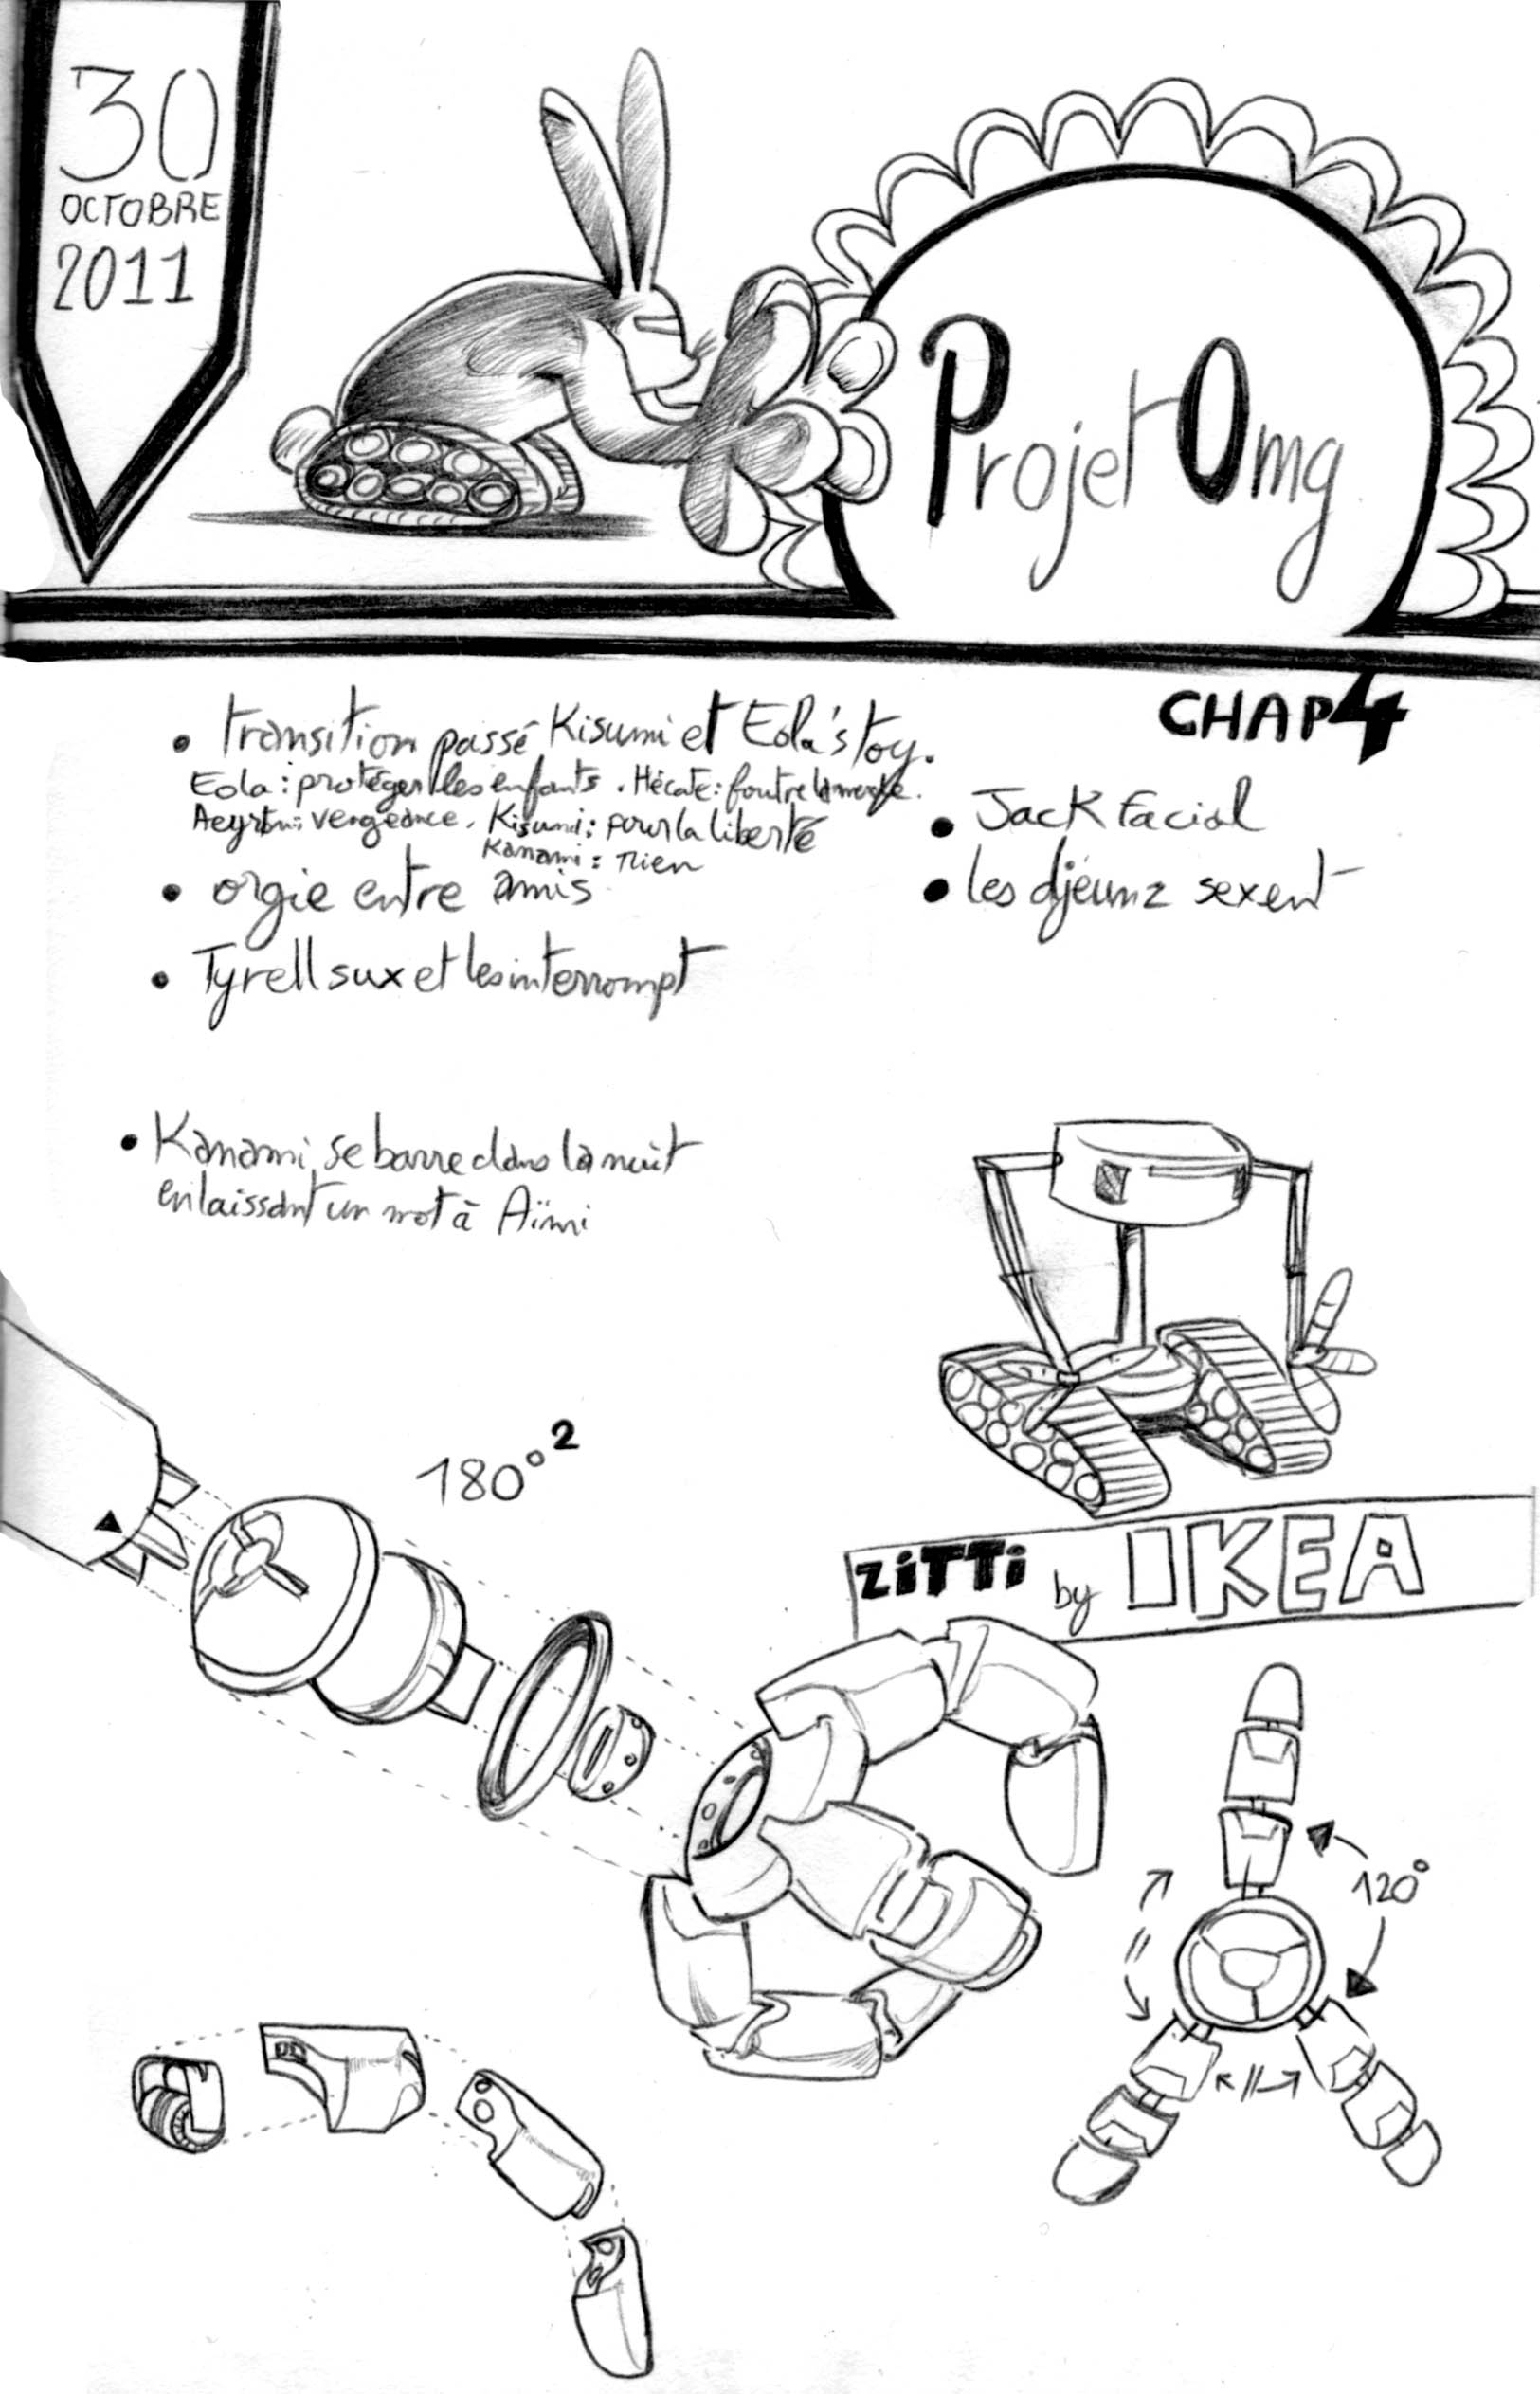 30
OCTOBRE
2011
Projet Omg
CHAP 4
• transition passé Kisumi et Eola's toy.
Eola : protéger les enfants . Hécate : foutre la merde.
Aeyrtn : vengeance . Kisumi : pour la liberté
Kanami : rien
• orgie entre amis
• Tyrell sux et les interrompt
• Jack Facial
• les djeunz sexent
• Kanami se barre dans la nuit
en laissant un mot à Aïmi
180°²
ZiTTi by IKEA
120°